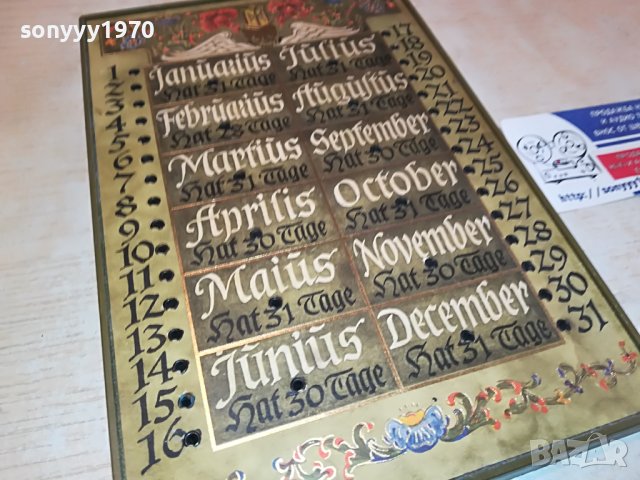 sonyyy1970
1
2
3
4
5
6
7
8
9
10
11
12
13
14
15
16
Januarius
Hat 31 Tage
Februarius
Hat 28 Tage
Martiüs
Hat 31 Tage
Aprilis
Hat 30 Tage
Maiüs
Hat 31 Tage
Jüniüs
Hat 30 Tage
Jülius
Hat 31 Tage
Augüstüs
Hat 31 Tage
September
Hat 30 Tage
October
Hat 31 Tage
November
Hat 30 Tage
December
Hat 31 Tage
17
18
19
20
21
22
23
24
25
26
27
28
29
30
31
ПРОДАЖБА
И АУДИО
ВНОС ОТ
http://sonyyy
BAZAR